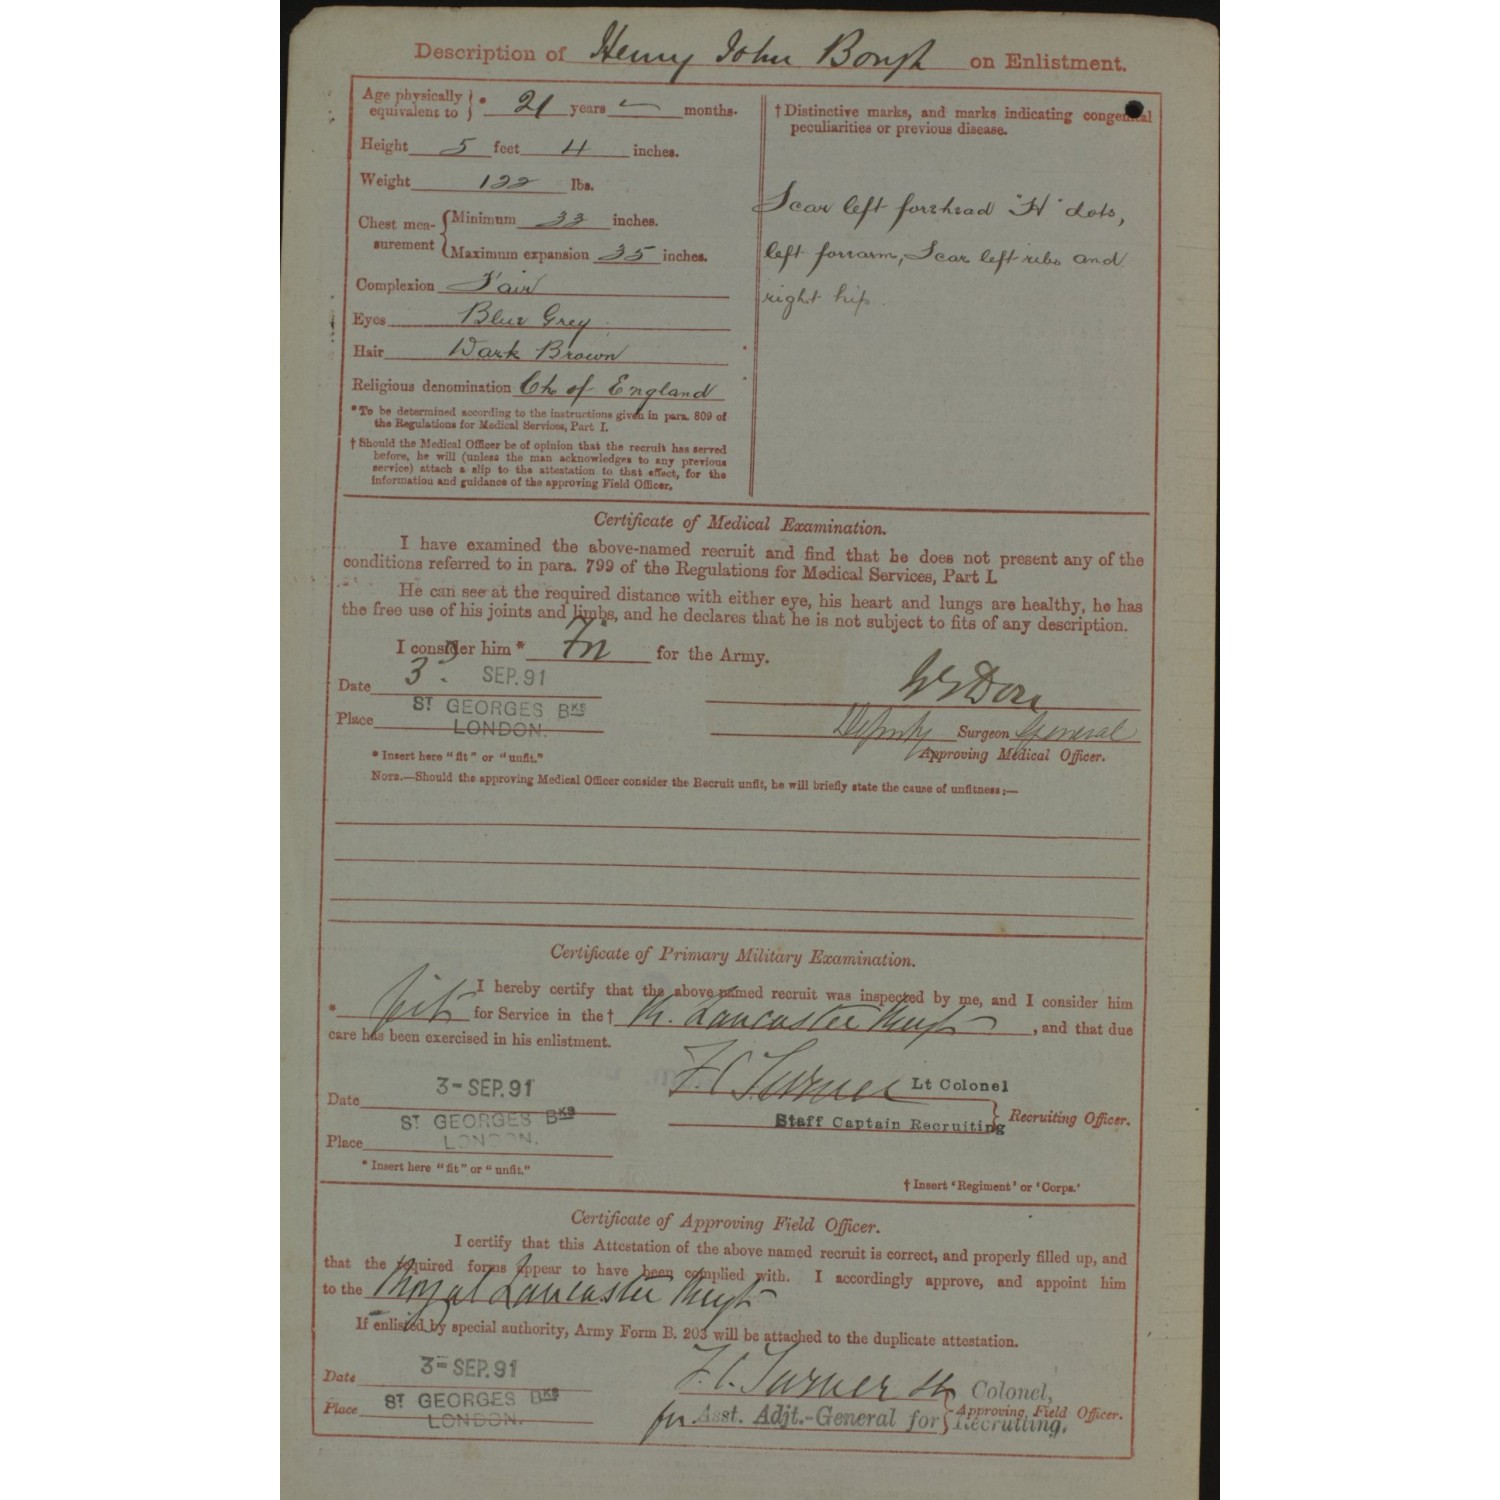 Description of Henry John Bough on Enlistment.
Age physically equivalent to * 21 years — months.
Height 5 feet 4 inches.
Weight 122 lbs.
Chest measurement Minimum 33 inches.
Maximum expansion 35 inches.
Complexion Fair
Eyes Blue Grey
Hair Dark Brown
Religious denomination Ch of England
* To be determined according to the instructions given in para. 809 of
the Regulations for Medical Services, Part I.
† Should the Medical Officer be of opinion that the recruit has served
before, he will (unless the man acknowledges to any previous
service) attach a slip to the attestation to that effect, for the
information and guidance of the approving Field Officer.
† Distinctive marks, and marks indicating congenital
peculiarities or previous disease.
Scar left forehead "H" dots,
left forearm, Scar left ribs and
right hip.
Certificate of Medical Examination.
I have examined the above-named recruit and find that he does not present any of the
conditions referred to in para. 799 of the Regulations for Medical Services, Part I.
He can see at the required distance with either eye, his heart and lungs are healthy, he has
the free use of his joints and limbs, and he declares that he is not subject to fits of any description.
I consider him * Fit for the Army.
Date 3 SEP. 91
Place ST GEORGES BKS
LONDON.
Deputy Surgeon General
Approving Medical Officer.
* Insert here "fit" or "unfit."
NOTE.—Should the approving Medical Officer consider the Recruit unfit, he will briefly state the cause of unfitness;—
Certificate of Primary Military Examination.
I hereby certify that the above-named recruit was inspected by me, and I consider him
* fit for Service in the † R. Lancaster Regt, and that due
care has been exercised in his enlistment.
F. C. Turner Lt Colonel
Staff Captain Recruiting
Recruiting Officer.
Date 3- SEP. 91
Place ST GEORGES BKS
LONDON.
* Insert here "fit" or "unfit."
† Insert 'Regiment' or 'Corps.'
Certificate of Approving Field Officer.
I certify that this Attestation of the above named recruit is correct, and properly filled up, and
that the required forms appear to have been complied with. I accordingly approve, and appoint him
to the Royal Lancaster Regt
If enlisted by special authority, Army Form B. 203 will be attached to the duplicate attestation.
Date 3- SEP. 91
Place ST GEORGES BKS
LONDON.
F. C. Turner Lt Colonel,
Approving Field Officer.
for Asst. Adjt.-General for Recruiting.